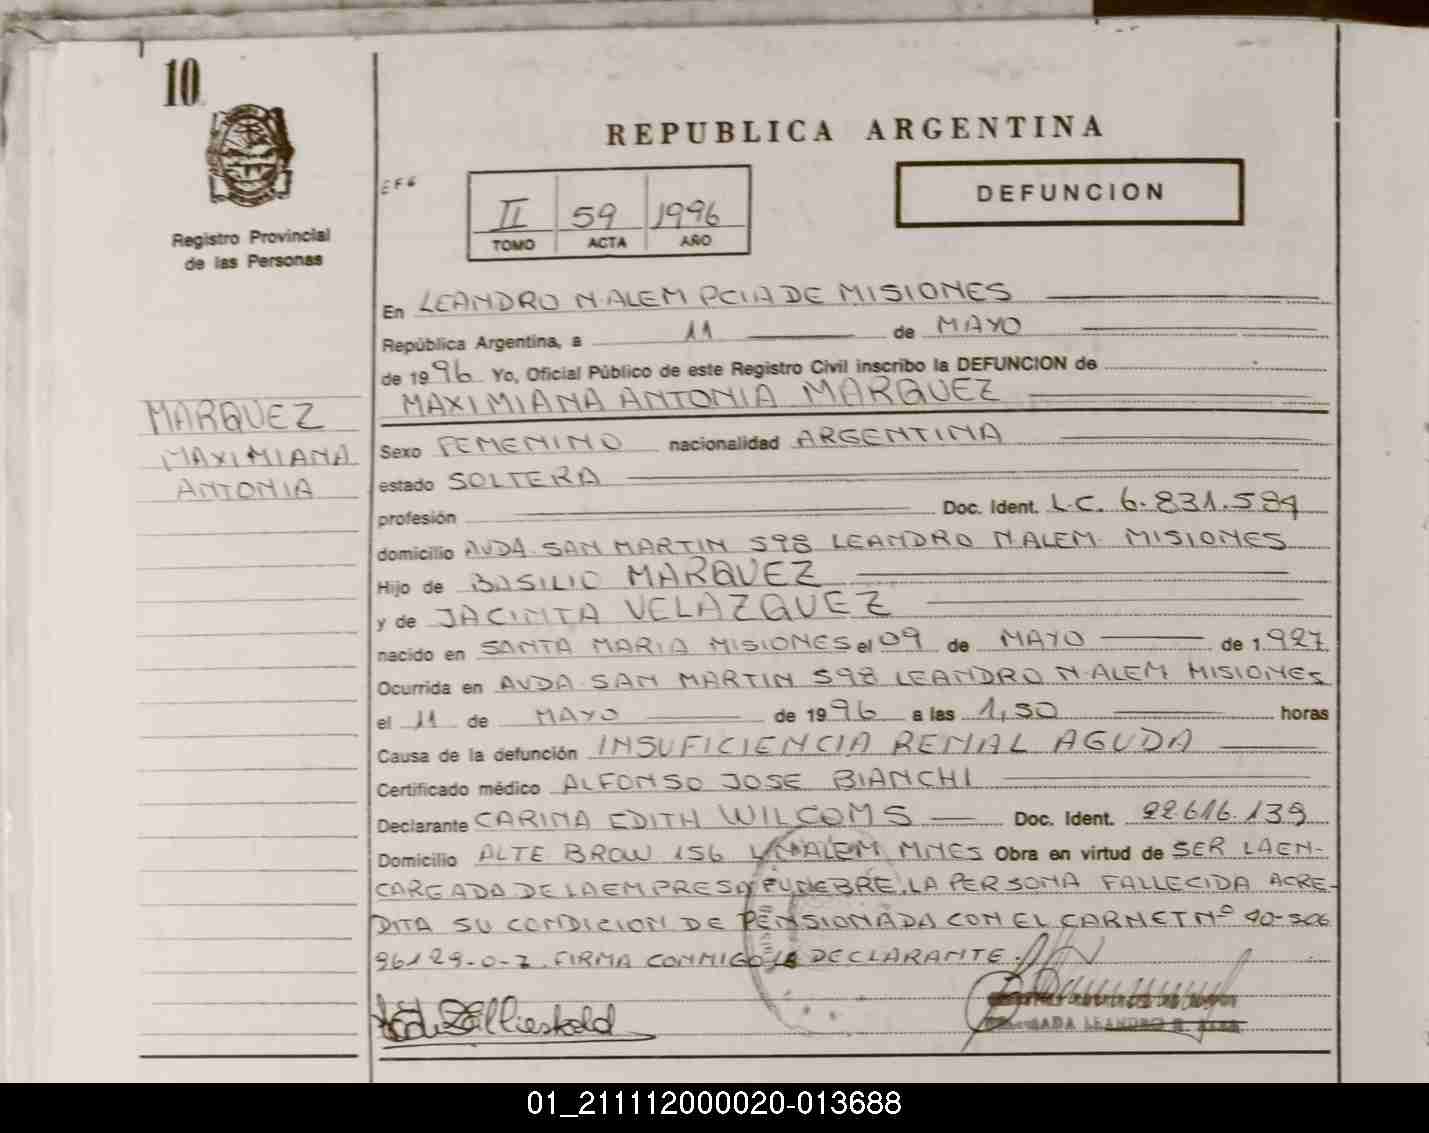 10
REPUBLICA ARGENTINA
Registro Provincial
de las Personas
II 59 1996
TOMO ACTA AÑO
DEFUNCION
En LEANDRO N. ALEM PCIA DE MISIONES
República Argentina, a 11 de MAYO
de 1996 Yo, Oficial Público de este Registro Civil inscribo la DEFUNCION de
MAXIMIANA ANTONIA MARQUEZ
MARQUEZ
MAXIMIANA
ANTONIA
Sexo FEMENINO nacionalidad ARGENTINA
estado SOLTERA
profesión Doc. Ident. L.C. 6.831.584
domicilio AVDA. SAN MARTIN 598 LEANDRO N. ALEM. MISIONES
Hijo de BASILIO MARQUEZ
y de JACINTA VELAZQUEZ
nacido en SANTA MARIA MISIONES el 09 de MAYO de 1.927
Ocurrida en AVDA. SAN MARTIN 598 LEANDRO N. ALEM MISIONES
el 11 de MAYO de 1996 a las 1,50 horas
Causa de la defunción INSUFICIENCIA RENAL AGUDA
Certificado médico ALFONSO JOSE BIANCHI
Declarante CARINA EDITH WILCOMS Doc. Ident. 22.616.139
Domicilio ALTE BROW 156 L. N. ALEM MNES Obra en virtud de SER LA EN-
CARGADA DE LA EMPRESA FUNEBRE. LA PERSONA FALLECIDA ACRE-
DITA SU CONDICION DE PENSIONADA CON EL CARNET Nº 40-506
96129-0-7. FIRMA CONMIGO LA DECLARANTE.
01_211112000020-013688